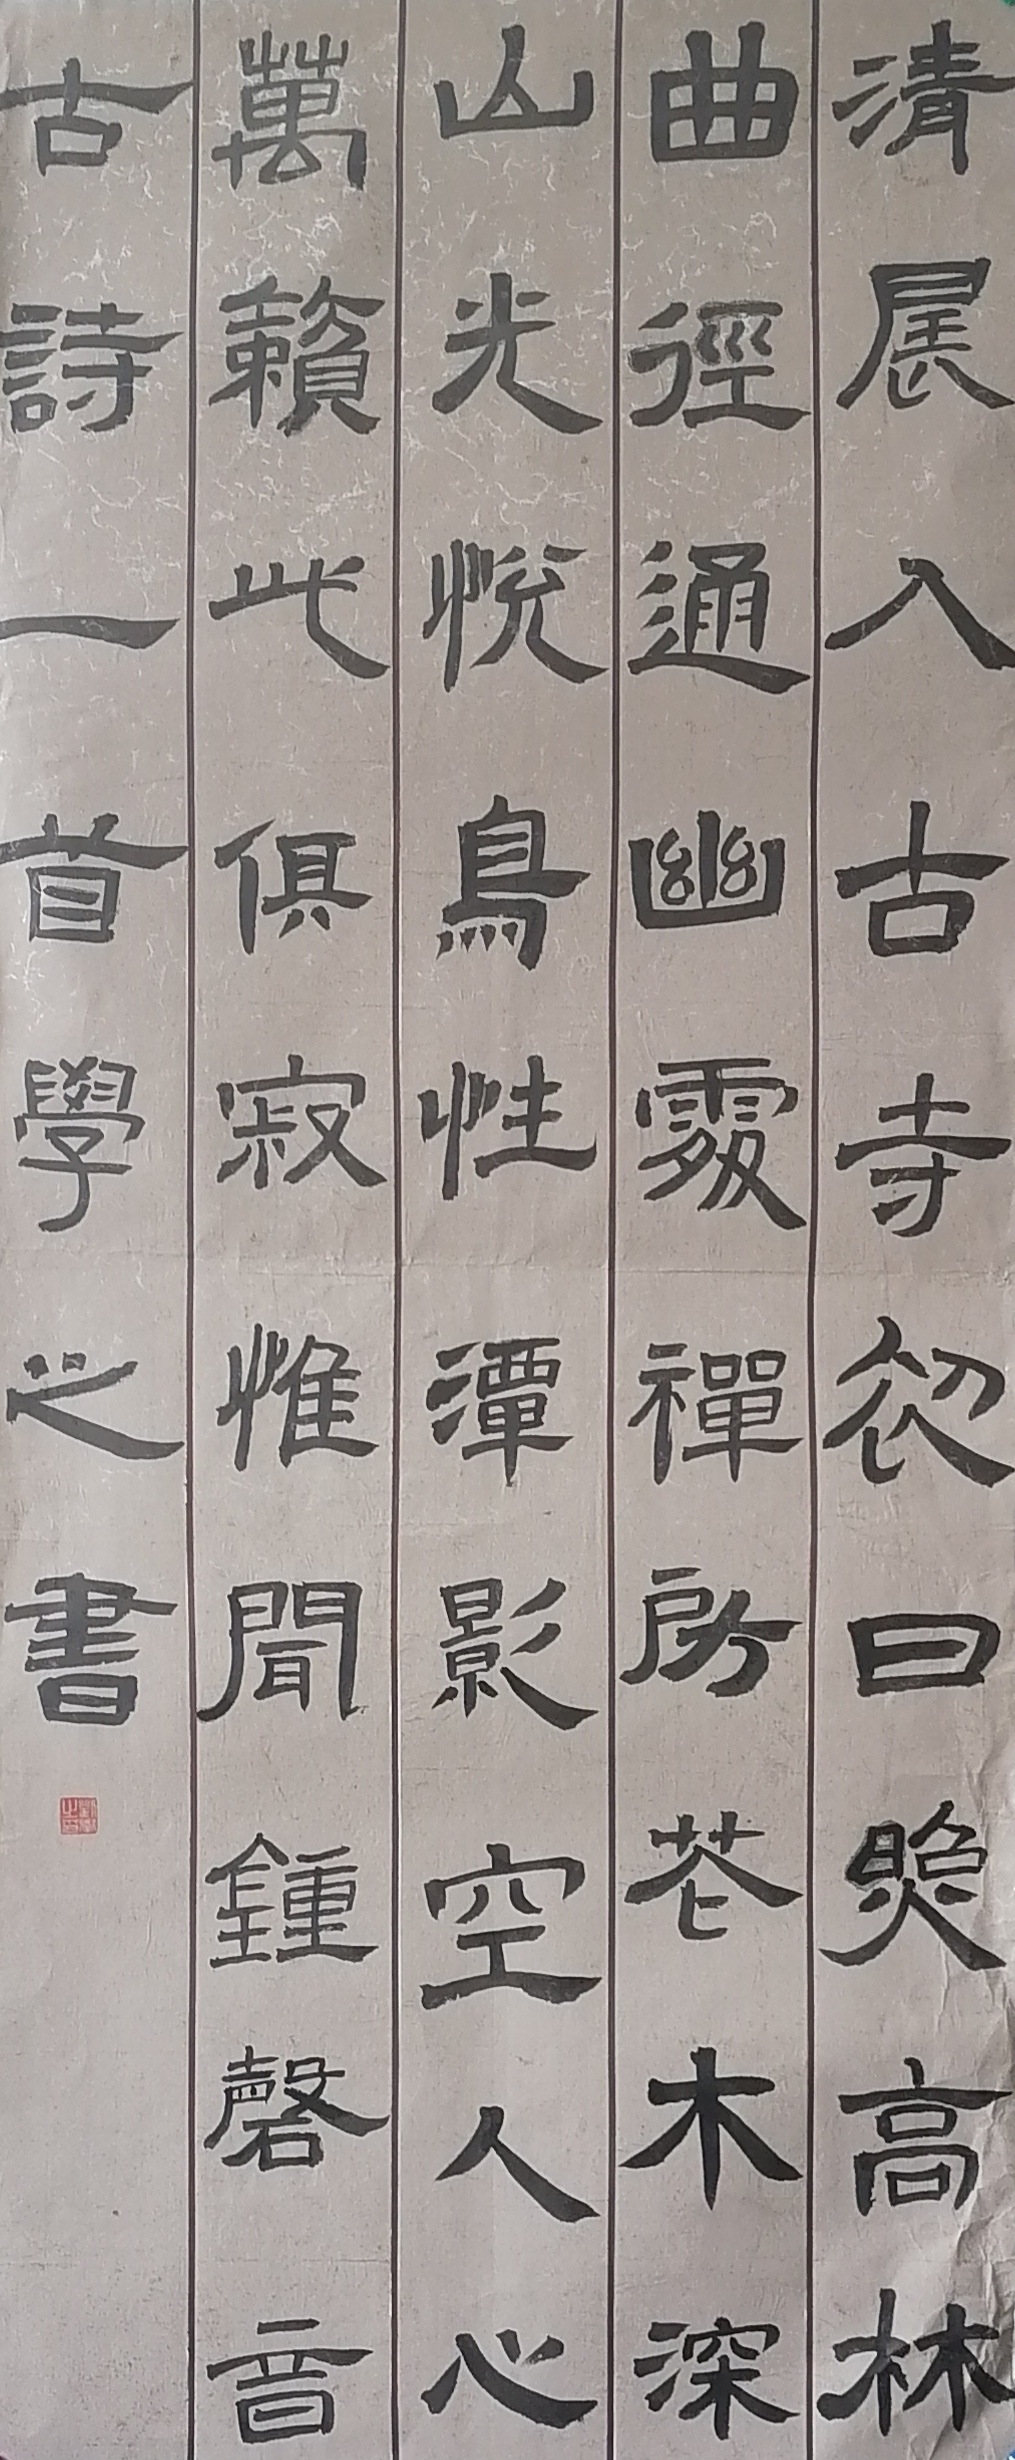 清晨入古寺初日照高林
曲徑通幽處禪房花木深
山光悅鳥性潭影空人心
萬籟此俱寂惟聞鍾磬音
古詩一首學之書